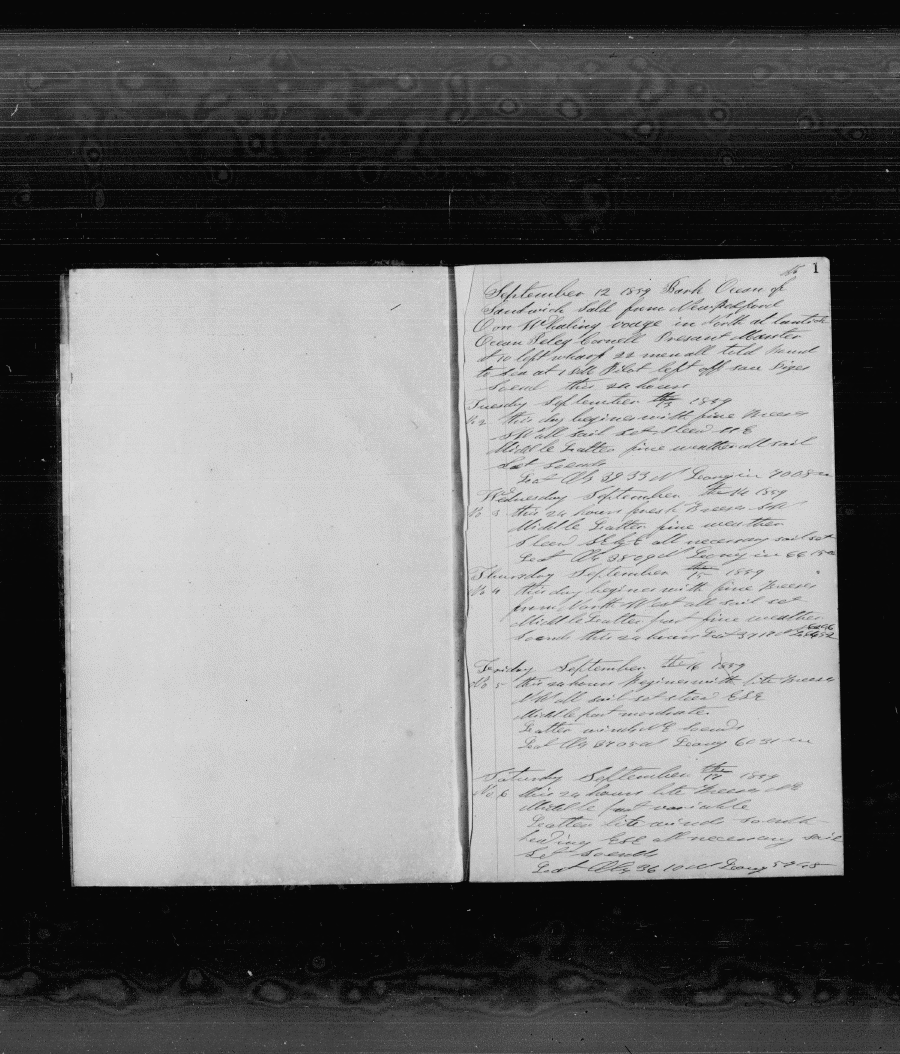 1
September 12 1859 Bark Ocean of
Sandwich Sald from New Bedford
On Whaling voage in North atlantick
Ocean Presant Master
At 10 left wharf 22 men all told
to sea at Pilot left off
Soend this 24 hours
Tuesday September the 13 1859
No 2 this day begines with fine Breeses
SW all sail set Steerd
Middle Latter fine weather all sail
Set Soends
Lat Ob 39 33 N Longin 70 08
Wednesday September the 14 1859
No 3 this 24 hours fresh Breeses SW
Middle Latter fine weather
Steerd all necessary sail set
Lat Ob 38 09 N Longin 66 15
Thursday September the 15 1859
No 4 this day begines with fine Breeses
from North West all sail set
Middle Latter part fine weather
Soends this 24 hours Lat
Friday September the 16 1859
No 5 this 24 hours Begines with lite Breeses
NW all sail set steerd ESE
Middle part moderate
Latter winds NE Soends
Lat Ob N Long 60
Saturday September the 17 1859
No 6 this 24 hours lite Breeses NE
Middle part variable
Latter lite winds South
heading ESE all necessary sail
Set Soends
Lat Ob 36 10 N Long